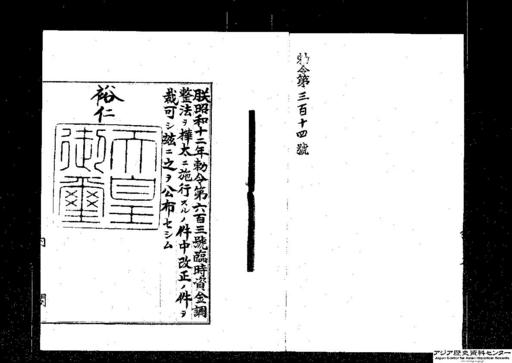 勅令第三百十四號
朕昭和十二年勅令第六百三號臨時資金調
整法ヲ樺太ニ施行スルノ件中改正ノ件ヲ
裁可シ玆ニ之ヲ公布セシム
裕仁
天皇御璽
内 閣
アジア歴史資料センター
Japan Center for Asian Historical Records